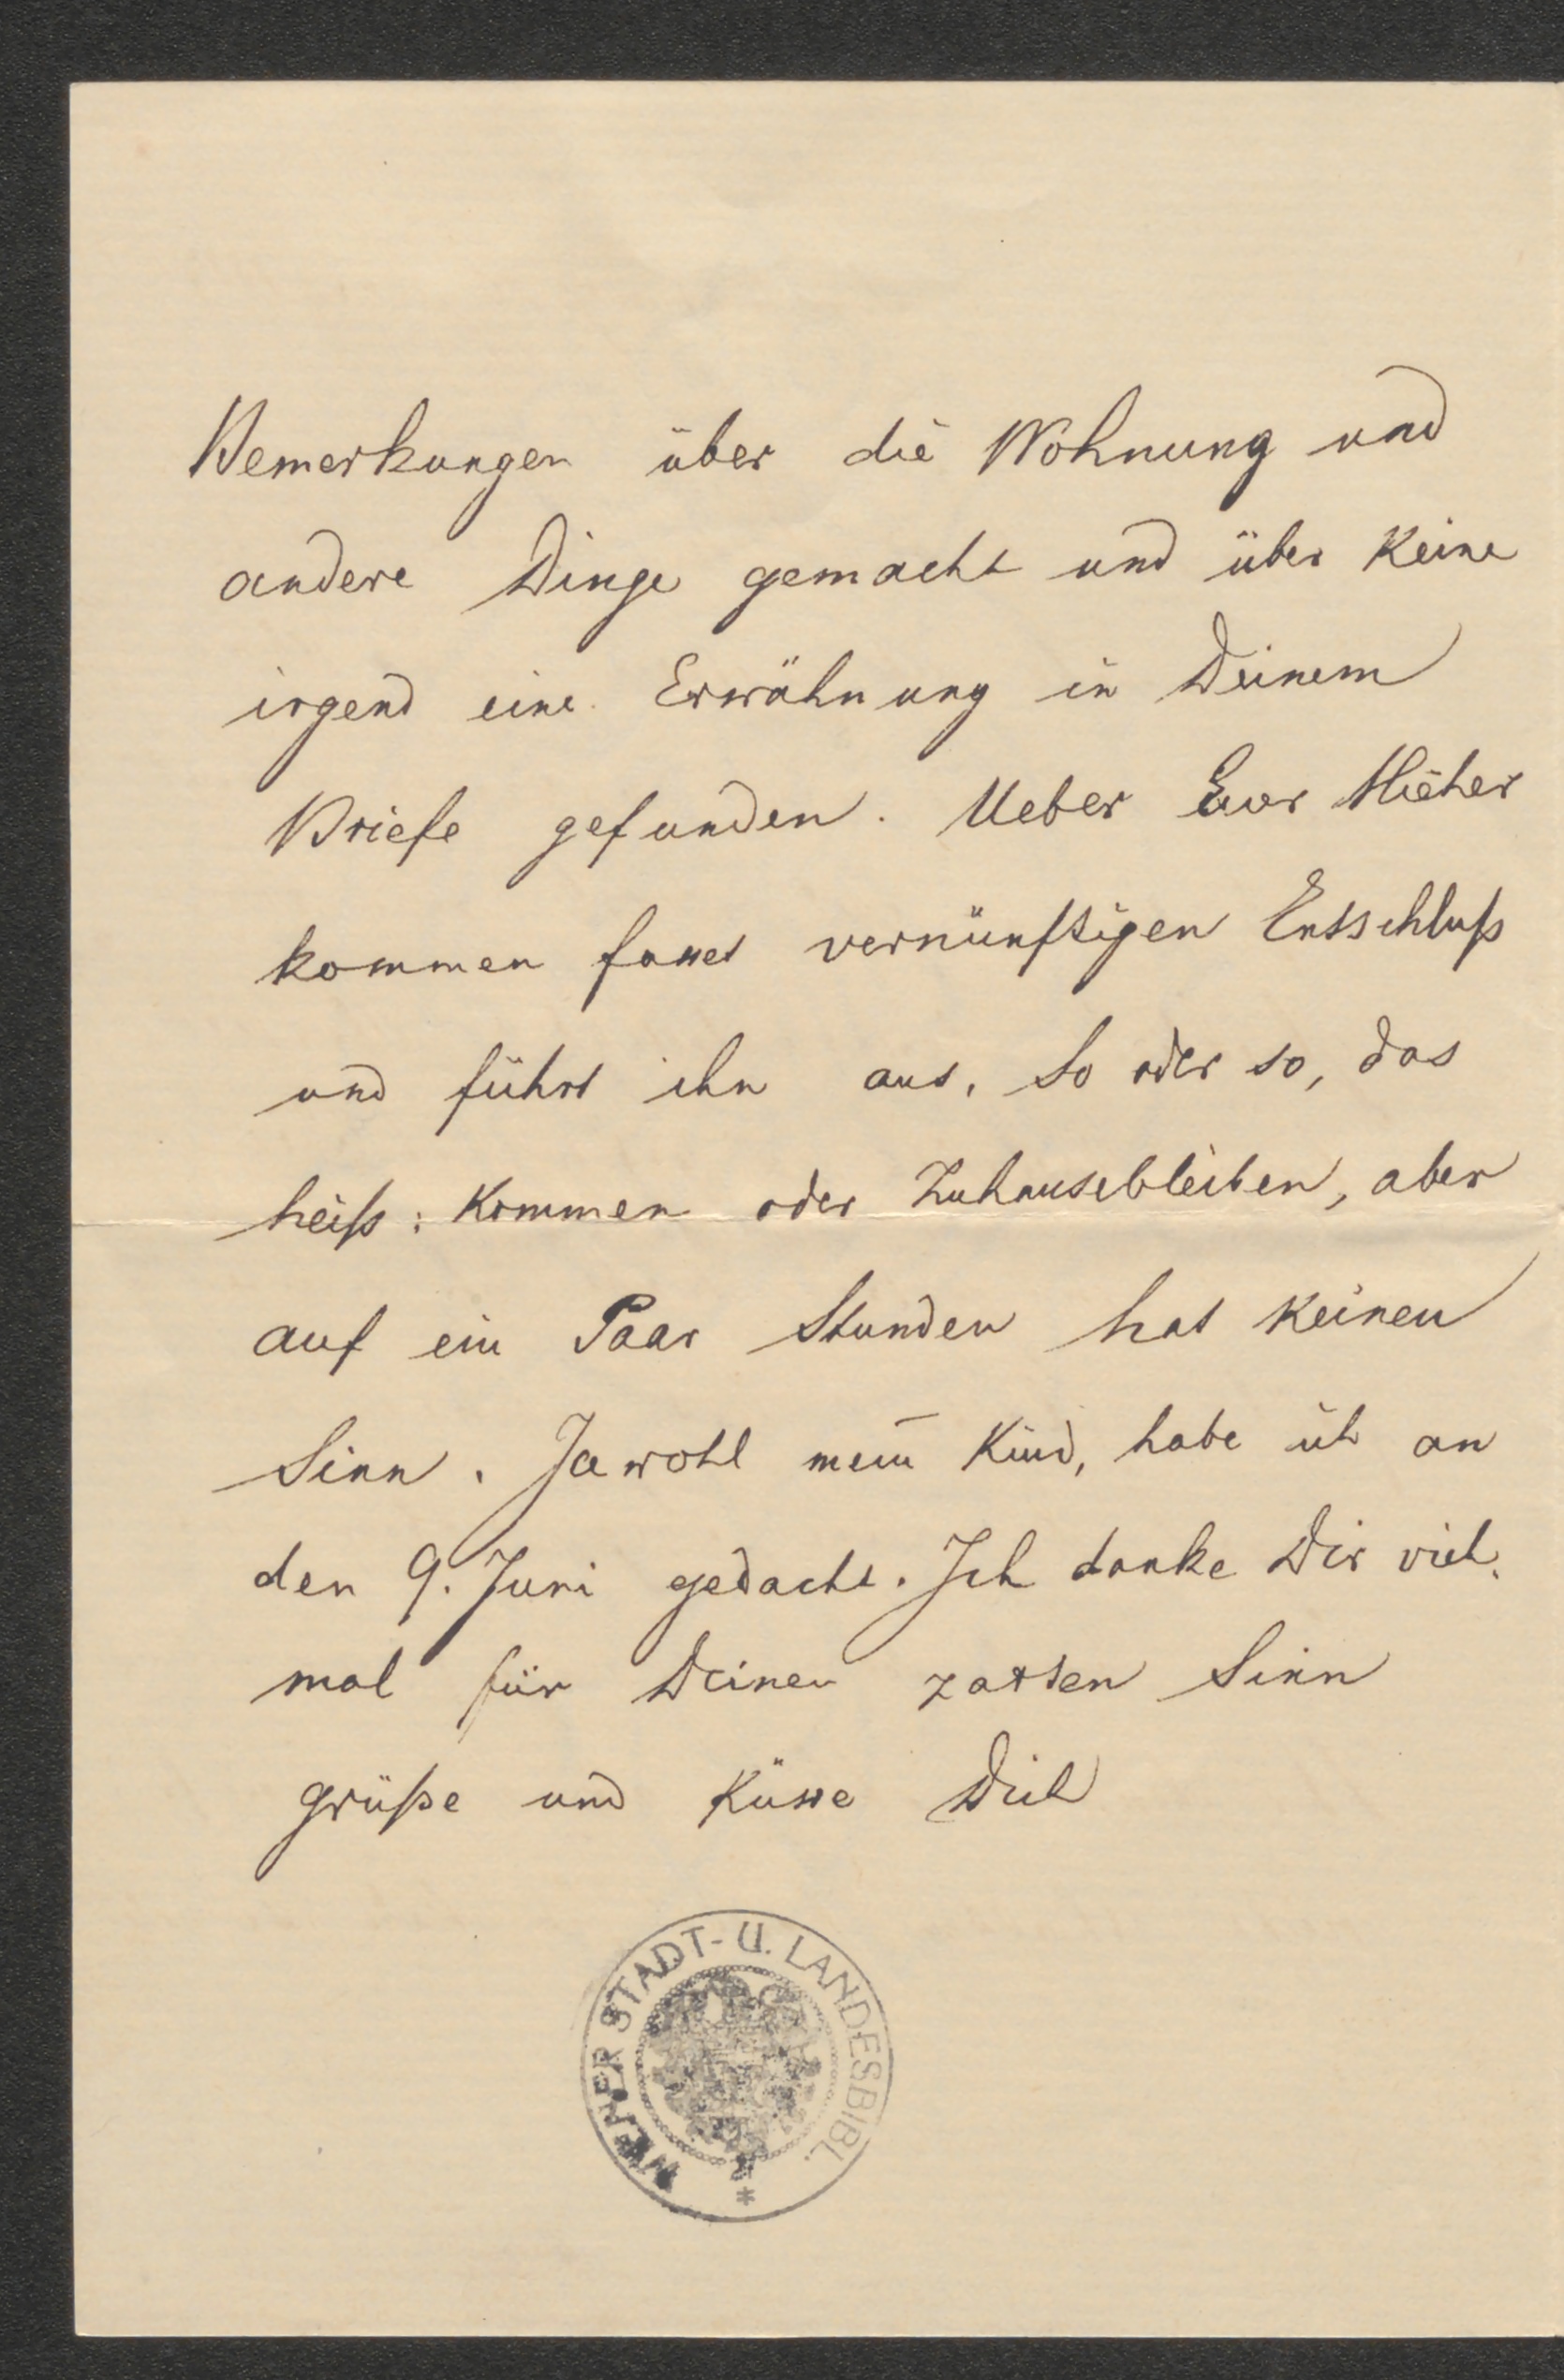 Bemerkungen über die Wohnung und
andere Dinge gemacht und über keine
irgend eine Erwähnung in Deinem
Briefe gefunden. Ueber Euer Hieher
kommen fasset vernünftigen Entschluß
und führt ihn aus. So oder so, das
heiß: Kommen oder Zuhausebleiben, aber
auf ein Paar Stunden hat keinen
Sinn. Jawohl mein Kind, habe ich an
den 9. Juni gedacht. Ich danke Dir viel-
mal für Deinen zarten Sinn
grüße und küsse Dich
WIENER STADT- U. LANDESBIBL.
*